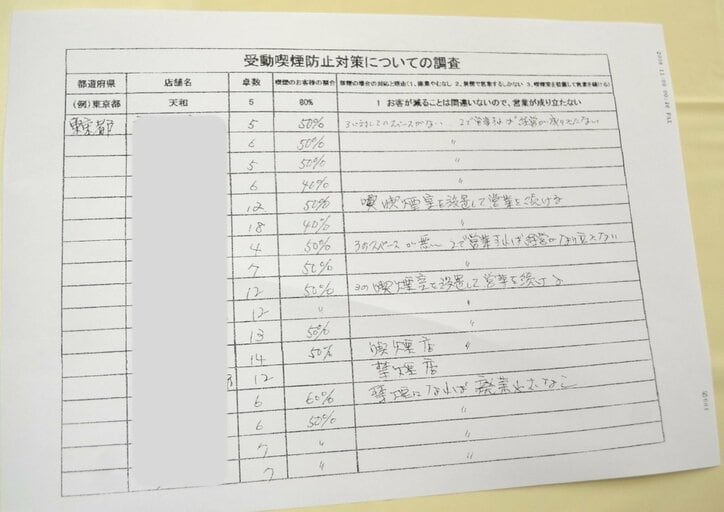 受動喫煙防止対策についての調査
都道府県 店舗名 卓数 喫煙のお客様の割合 禁煙の場合の対応と理由(1、廃業やむなし 2、禁煙で営業するしかない 3、喫煙室を設置して営業を続ける)
(例)東京都 天和 5 80% 1 お客が減ることは間違いないので、営業が成り立たない
東京都 5 50% スペースがない 2で営業すれば経営が成りたたない
6 50% 〃
5 50% 〃
6 40% 〃
12 50% 喫煙室を設置して営業を続ける
18 40% 〃
4 50% 3のスペースが無い 2で営業すれば経営がなり立たない
7 50% 〃
12 50% 3の喫煙室を設置して営業を続ける
12 〃 〃
13 50%
14 50% 喫煙店 〃
12 禁煙店
6 60% 禁煙になれば廃業やむなし
6 50% 〃
7 〃 〃
7 〃 〃